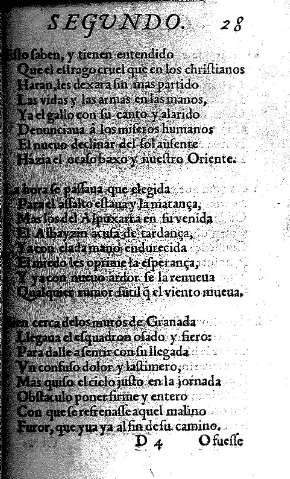 SEGUNDO. 28
saben, y tienen entendido
Que el estrago cruel que en los christianos
Haran, les dexara sin mas partido
Las vidas y las armas en las manos,
Ya el gallo con su canto y alarido
Denunciaua à los miseros humanos
El nueuo declinar del sol ausente
Hazia el ocaso baxo y nuestro Oriente.
hora se passaua que elegida
Para el assalto estaua y la matança,
Mas los del Alpuxarra en su venida
El Albayzin acusa de tardança,
Y a con elada mano endurecida
El miedo les oprime la esperança,
Y ya con nueuo ardor se la renueua
Qualquier rumor sutil q̃ el viento mueua.
cerca delos muros de Granada
Llegaua el esquadron osado y fiero:
Para dalle a sentir con su llegada
Vn confuso dolor y lastimero,
Mas quiso el cielo justo en la jornada
Obstaculo poner firme y entero
Con que se refrenasse aquel malino
Furor, que yua ya al fin de su camino.
D 4 O fuesse